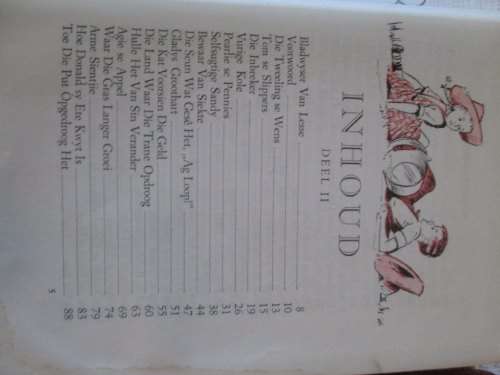 INHOUD
DEEL II
Bladwyser Van Lesse 8
Voorwoord 10
Die Tweeling se Wens 13
Tom se Slippers 15
Die Inbreker 19
Vurige Kole 26
Pearlie se Pennies 31
Selfsugtige Sandy 38
Bewaar Van Siekte 44
Die Seun Wat Gesê Het, „Ag Loop!" 47
Gladys Groothart 51
Die Kat Voorsien Die Geld 55
Die Land Waar Die Trane Opdroog 60
Hulle Het Van Sin Verander 63
Agie se Appel 69
Waar Die Gras Langer Groei 74
Arme Sientjie 79
Hoe Donald sy Ete Kwyt Is 83
Toe Die Put Opgedroog Het 88
5